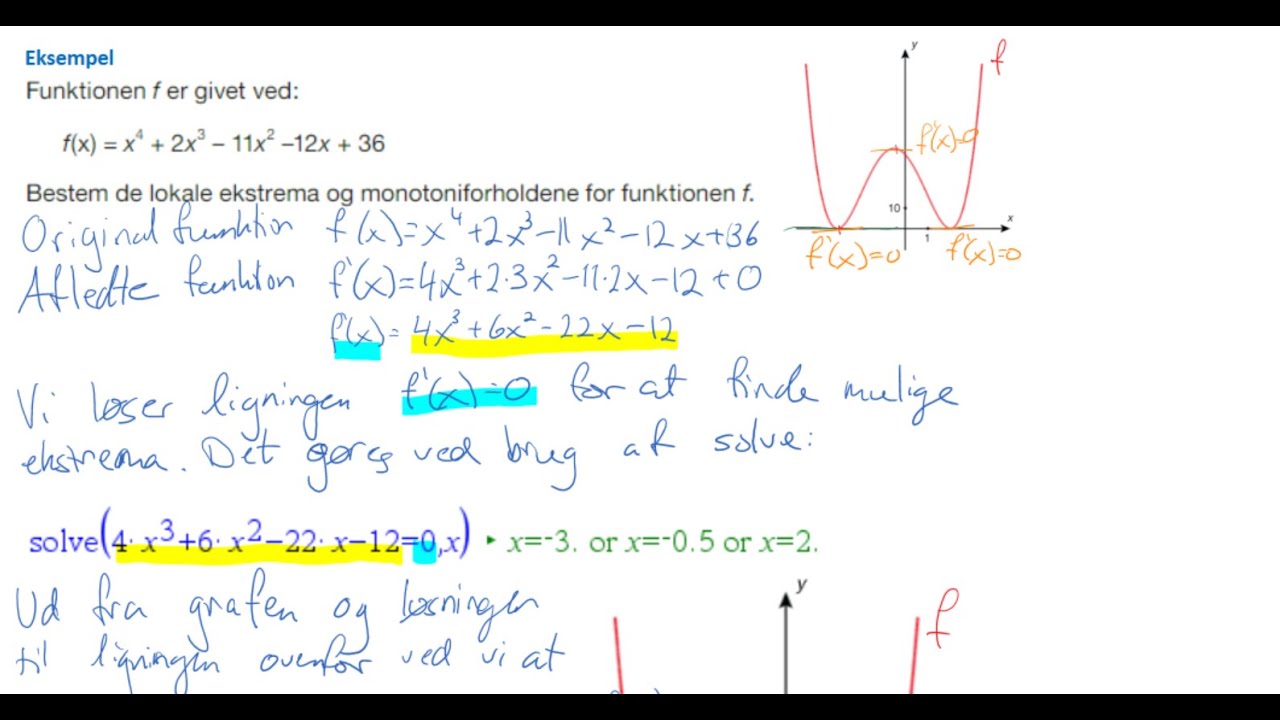 Eksempel
Funktionen f er givet ved:
f(x) = x⁴ + 2x³ – 11x² –12x + 36
Bestem de lokale ekstrema og monotoniforholdene for funktionen f.
Original funktion f(x)=x⁴+2x³-11x²-12x+36
Afledte funktion f'(x)=4x³+2·3x²-11·2x-12+0
f'(x)= 4x³+6x²-22x-12
Vi løser ligningen f'(x)=0 for at finde mulige
ekstrema. Det gøres ved brug af solve:
solve(4·x³+6·x²−22·x−12=0,x) ▸ x=⁻3. or x=⁻0.5 or x=2.
Ud fra grafen og løsningen
til ligningen ovenfor ved vi at
y
f
f'(x)=0
10
x
1
f'(x)=0
f'(x)=0
y
f